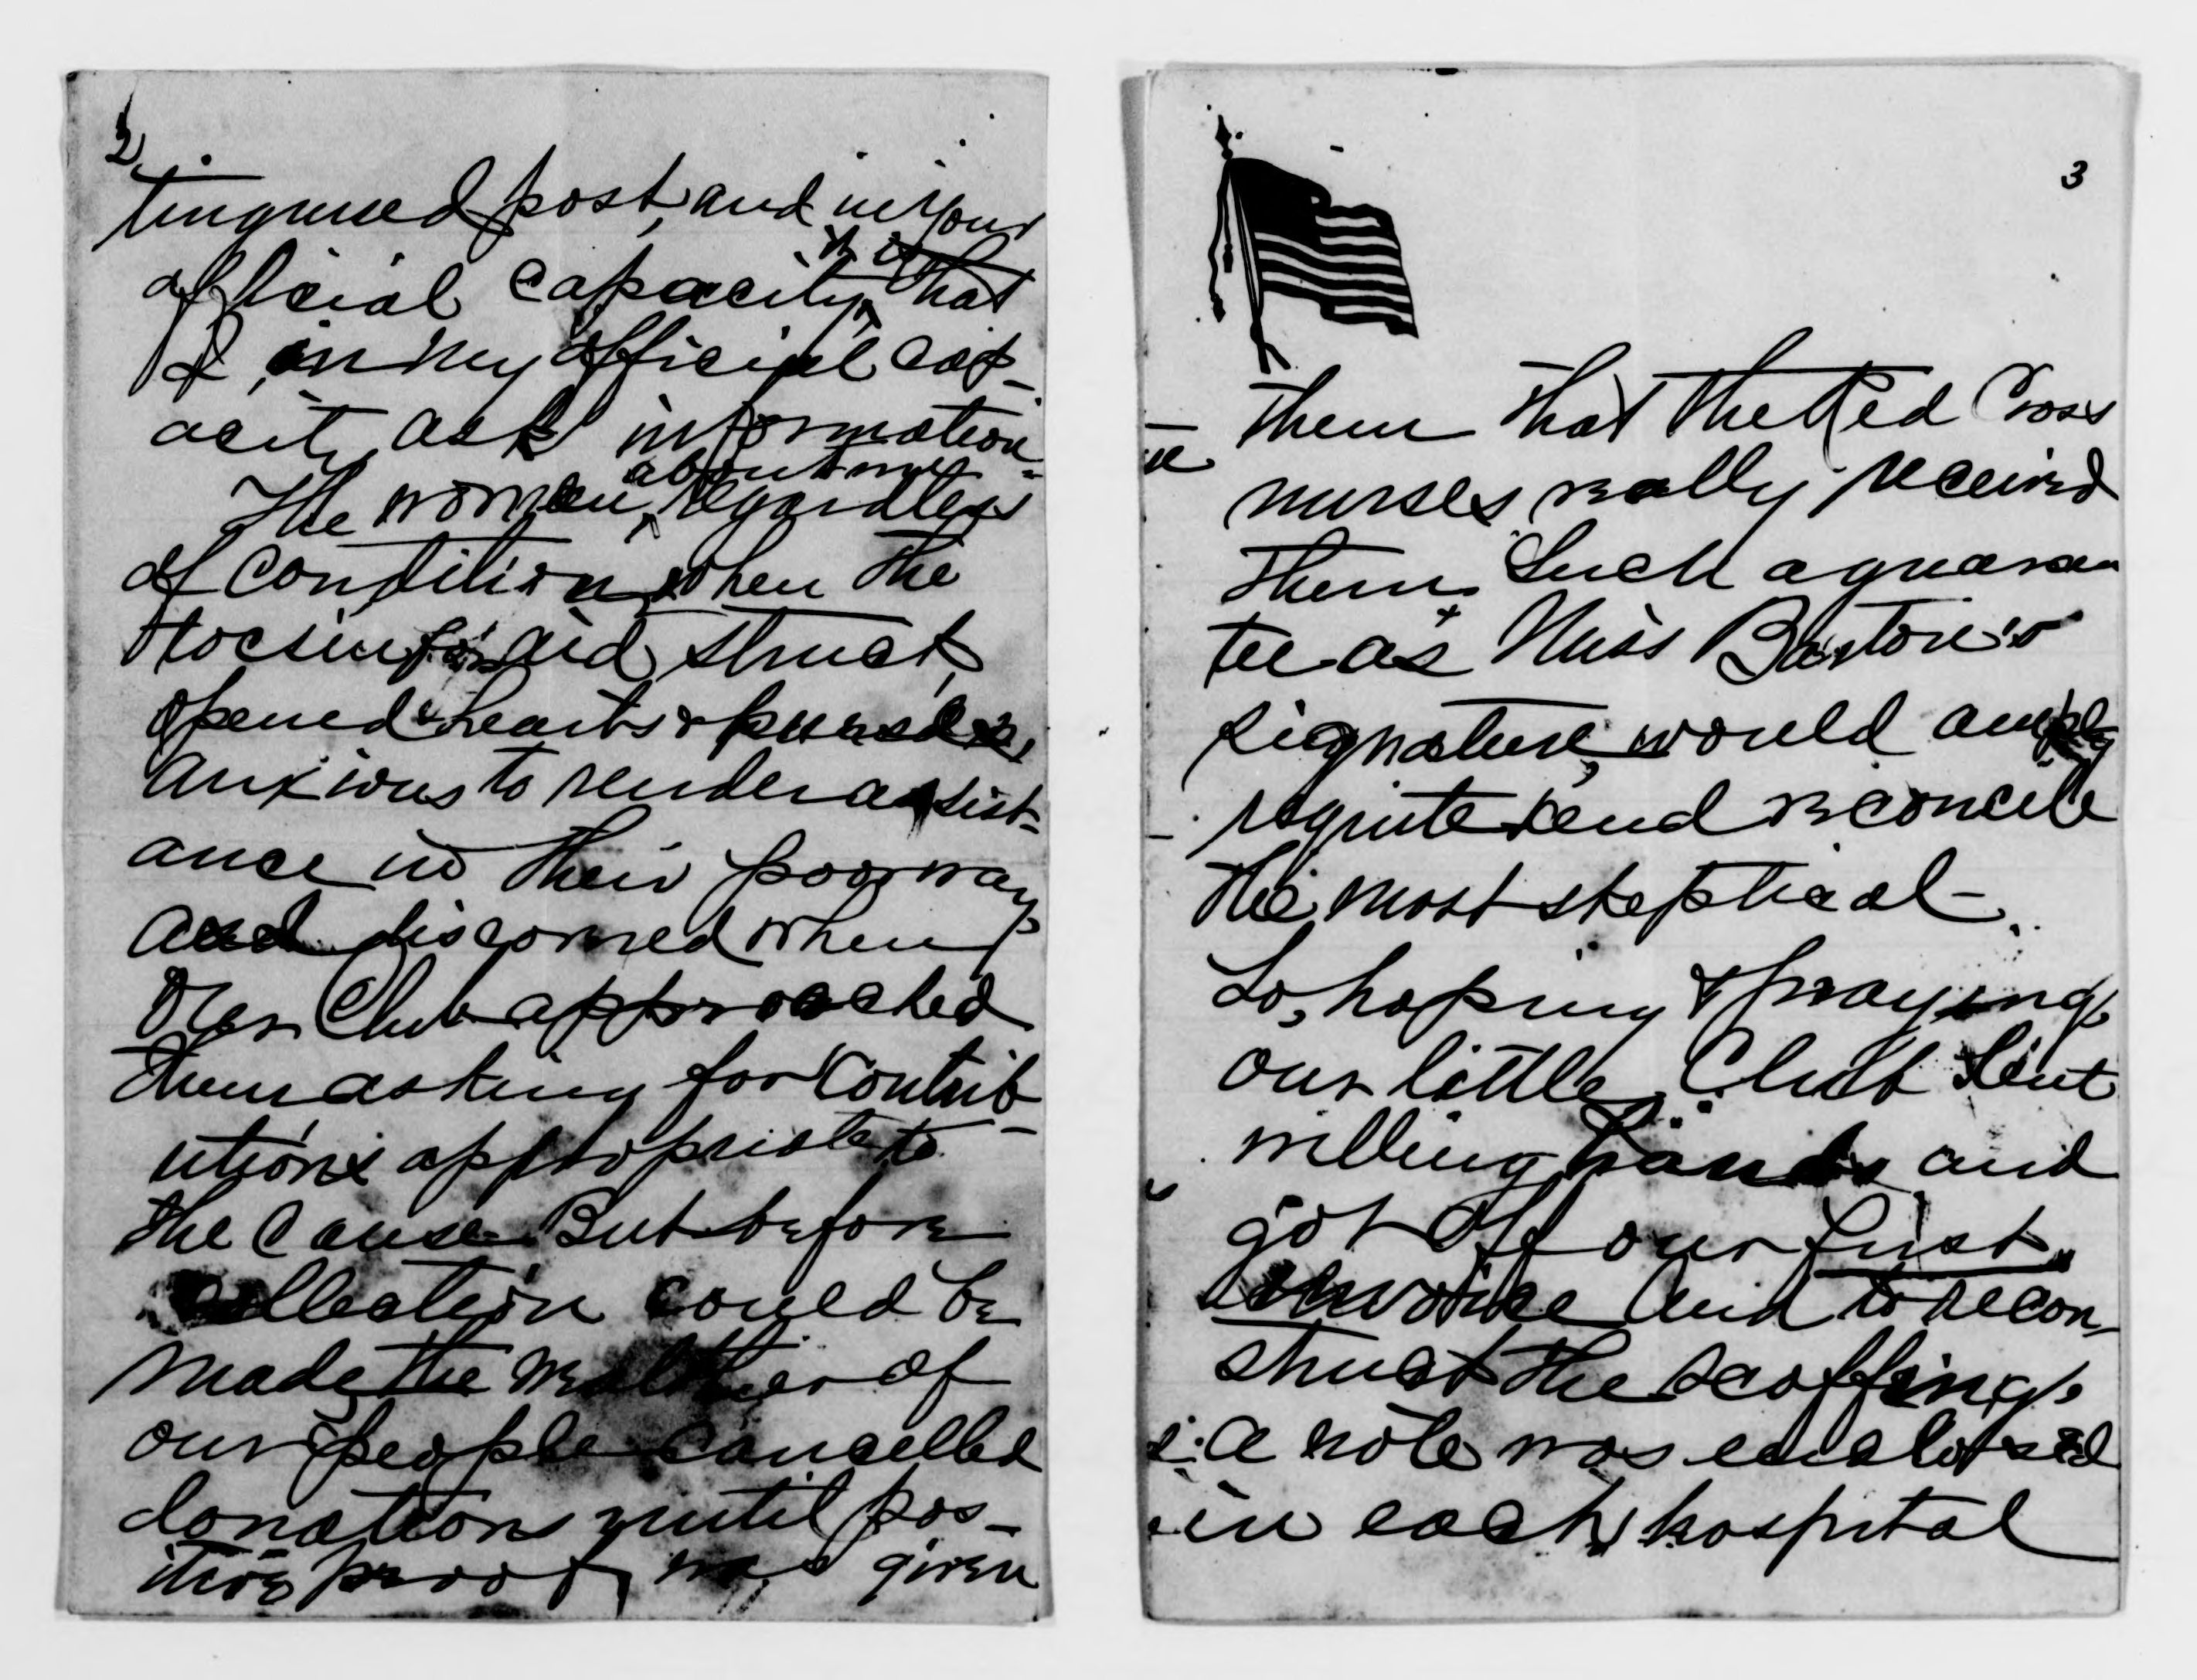 2
tinguised post, and in your
official capacity, it is that
I, in my official cap-
acity ask information-
The women, about me regardless
of condition, when the
tocsin for aid, struck,
opened hearts & purses,
anxious to render assist-
ance in their poor way
and discorned when
Our Club approached
them asking for contrib-
utions appropriate to
the Cause. But before
collection could be
made the wealthier of
our people cancelled
donations until pos-
itive proof, was given
3
them that the Red Cross
nurses really received
them. Such a guaran
tee as Miss Barton's
signature, would amply
requite and reconcile
the most skeptical-
So, hoping & praying,
our little Club lent
willing hands and
got off our first
invoice and to recon-
struct the scoffing,
a note was enclosed
in each hospital